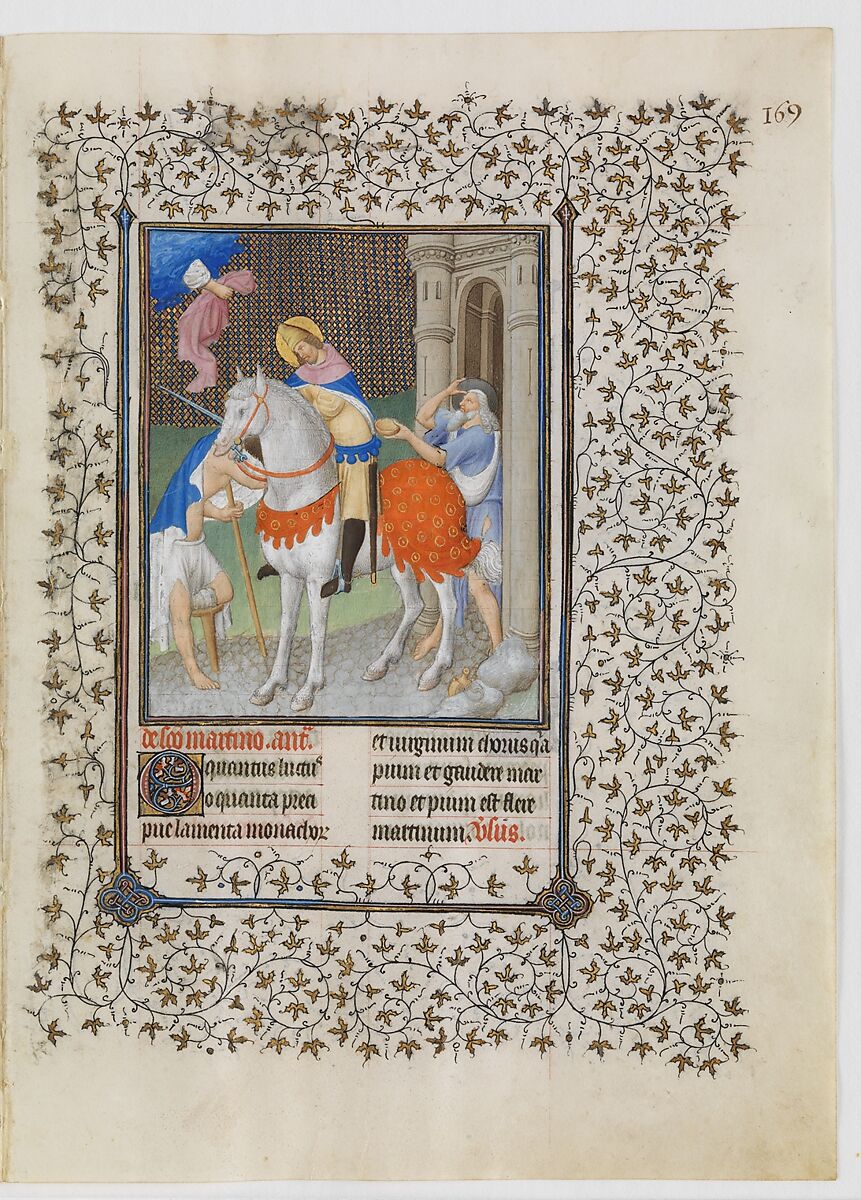 169
de sco martino. ant.
O quantus luctus
o quanta preci
pue lamenta monachor
et uirginum chorus q̄a
pium et gaudere mar
tino et pium est flere
martinum. V̓sus.